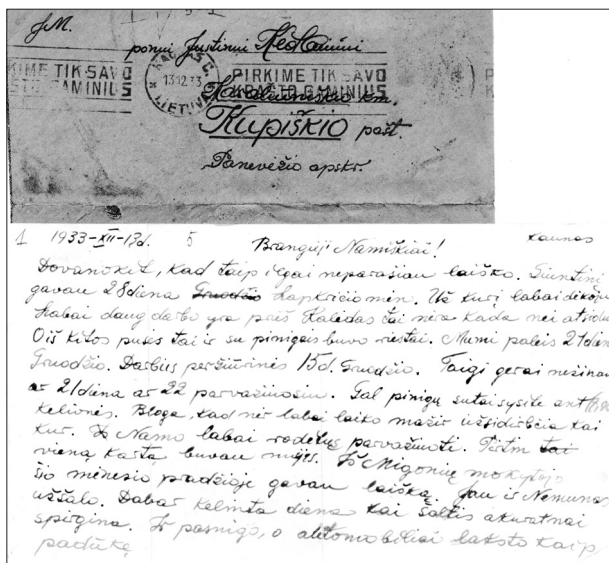 J.M.
ponui Justinui
KIME TIK SAVO
KAUNAS C.
13 12 33
LIETUVA
PIRKIME TIK SAVO
KRAŠTO GAMINIUS
km.
Kupiškio pašt.
Panevėžio apskr.
1 1933-XII-13d. 5 Kaunas
Brangieji Namiškiai!
Dovanokit, kad taip ilgai neparašiau laiško. Siuntinį
gavau 28 diena Gruodžio Lapkričio mėn. Už kurį labai dėkoju
Labai daug darbo yra prieš Kalėdas tai nėra kada nei atsidu
O iš kitos pusės tai ir su pinigais buvo riestai. Mumi paleis 21 dien
Gruodžio. Darbus peržiūrinės 15 d. Gruodžio. Taigi gerai nežinau
ar 21 diena ar 22 parvažiuosiu. Gal pinigų sutaisysite ant
kelionės. Bloga, kad nėr labai laiko mažir užsidirbčia kai
kur. Iš Namo labai parvažiuoti.
vieną karta buvau Iš Migonių mokytojo
šio mėnesio pradžioje gavau laišką. Jau ir Nemunas
užšalo. Dabar kelinta diena kai šaltis akuratnai
spirgina. Ir pasnigo, o automobiliai laksto kaip
padūkę